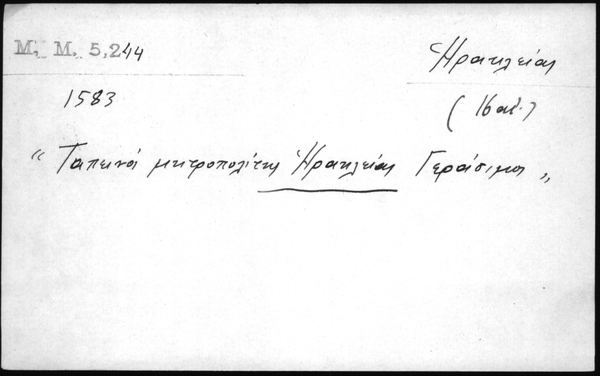 M. M. 5,244
Ἡρακλείας
1583
(16 αἰ.)
“ Ταπεινὸς μητροπολίτης Ἡρακλείας Γεράσιμος „